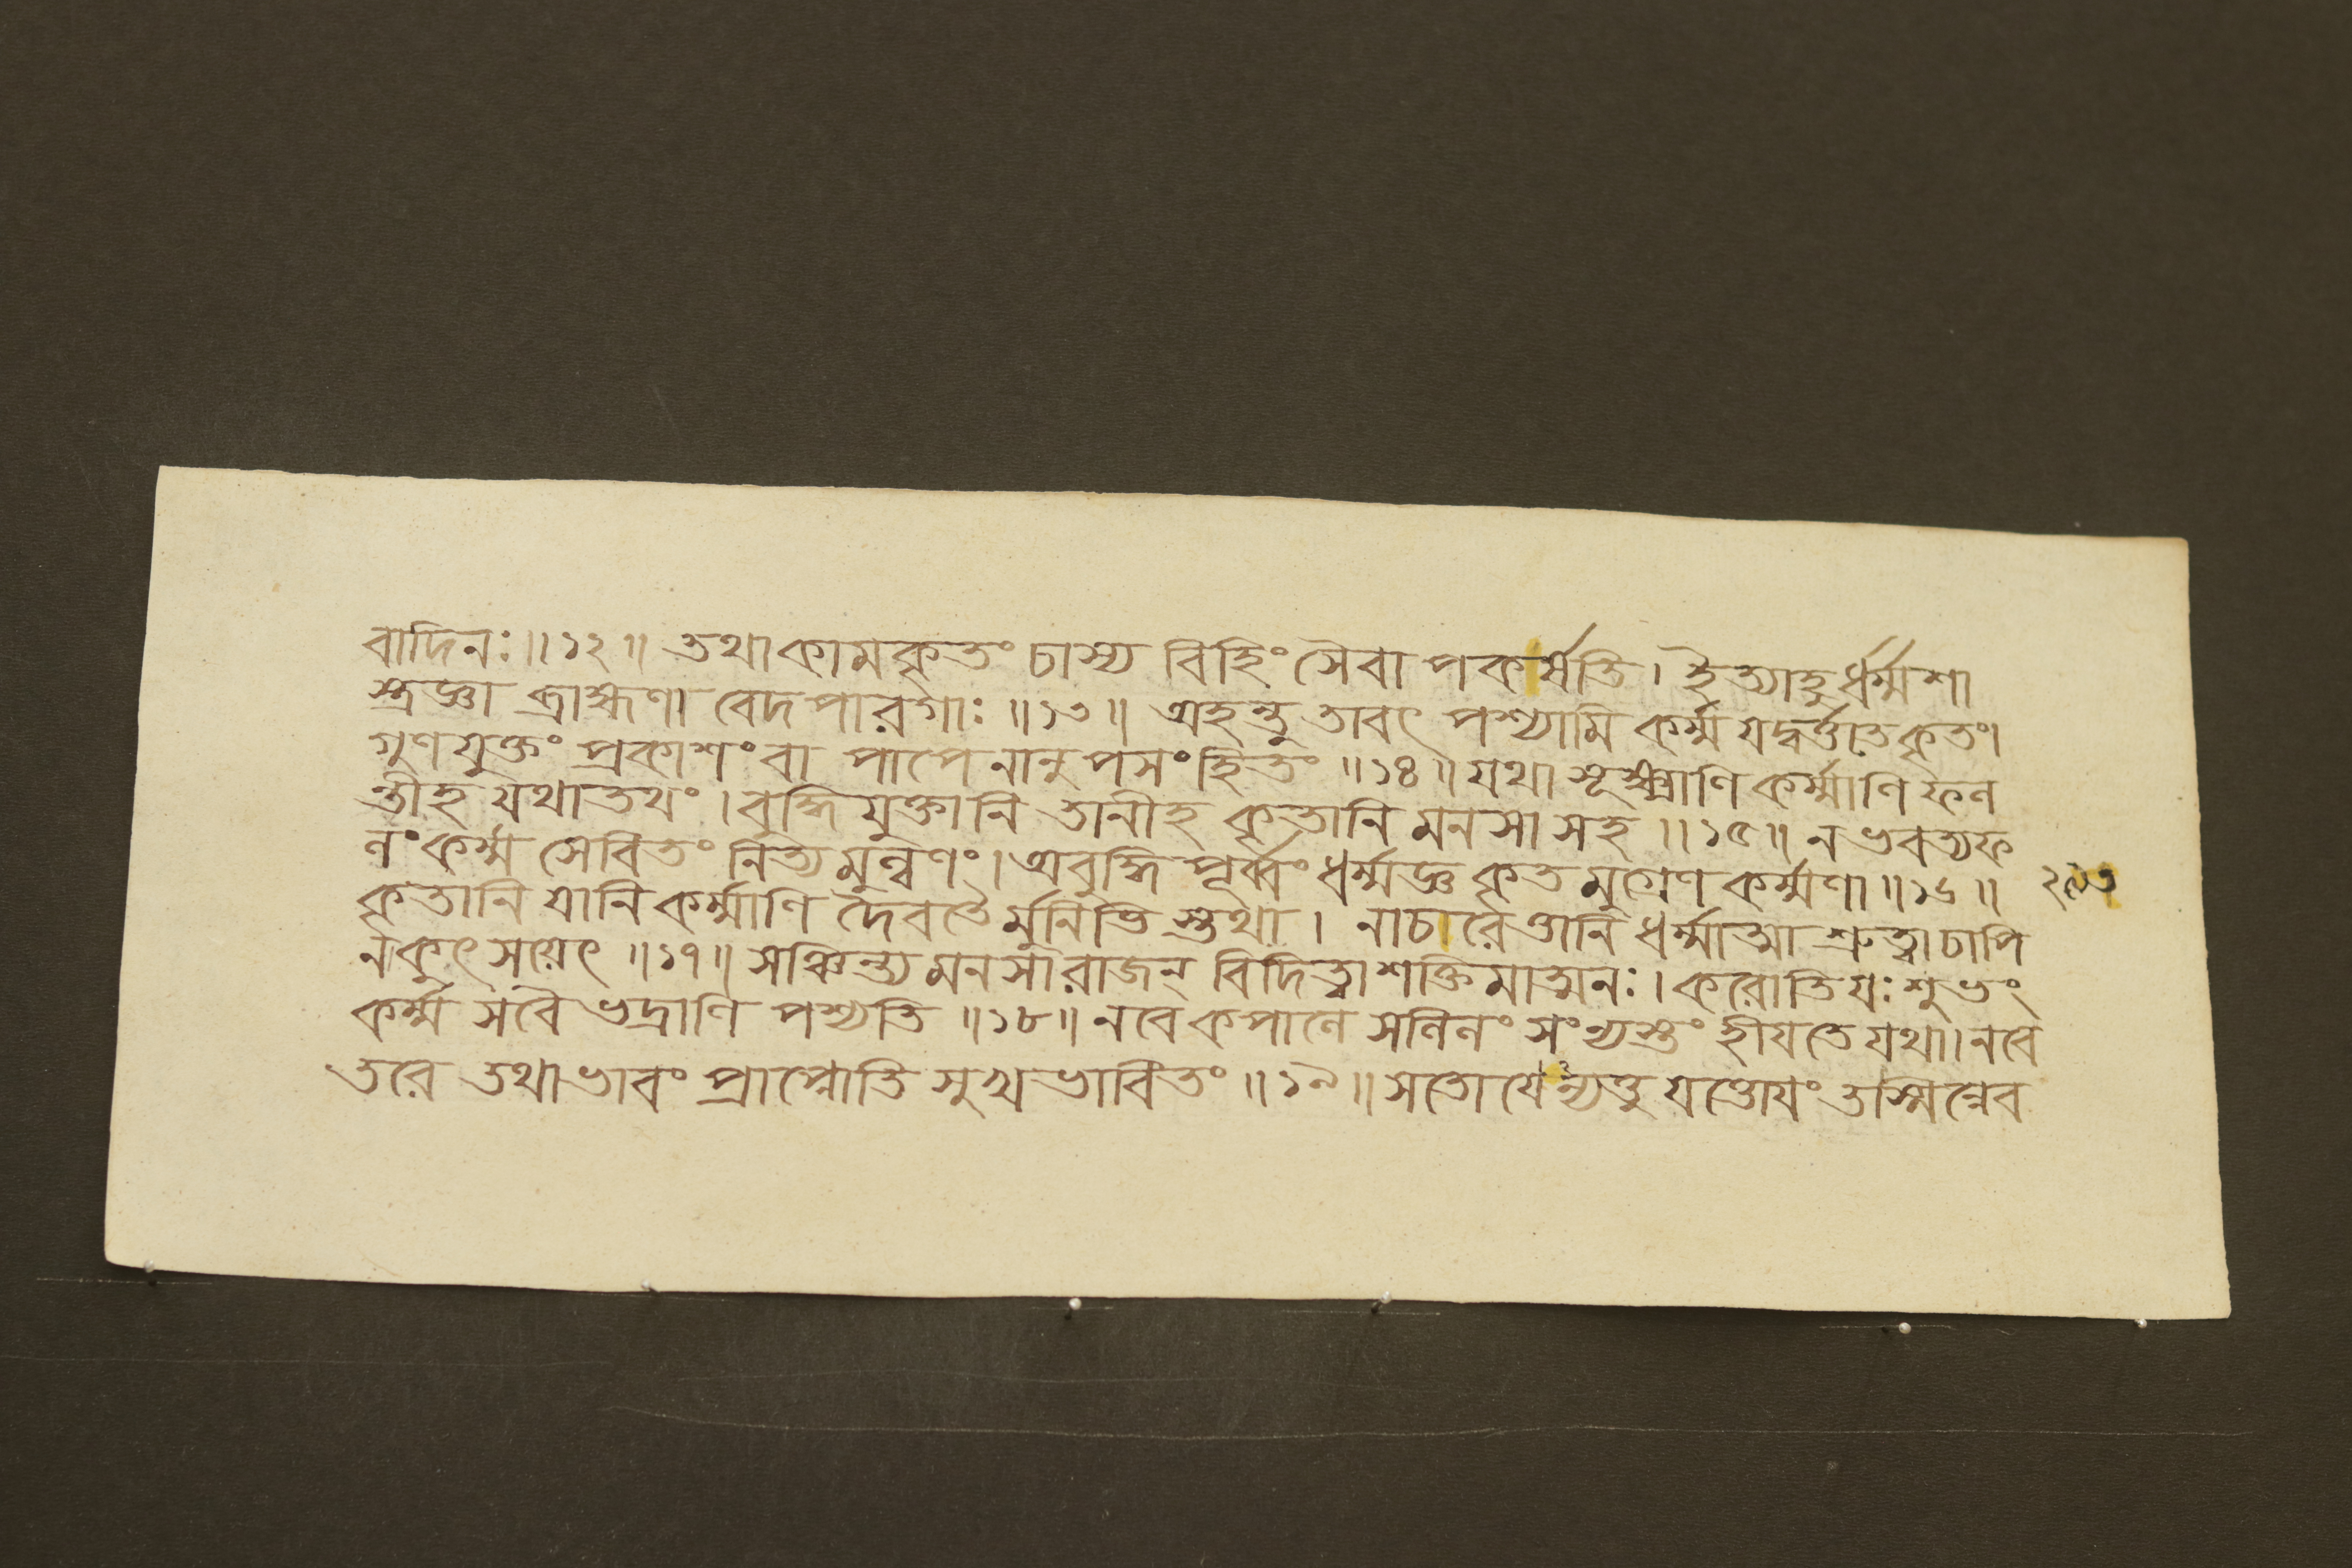 বাদিনঃ ॥ ১২ ॥ তথাকামকৃতং চাস্য বিহিংসৈবাপকর্ষতি । ইত্যাহুর্ধর্ম্মশা
স্ত্রজ্ঞা ব্রাহ্মণা বেদপারগাঃ ॥ ১৩ ॥ অহন্তু তাবৎ পশ্যামি কর্ম্ম যদ্বর্ত্ততে কৃতং ।
গুণযুক্তং প্রকাশং বা পাপেনানুপসংহিতং ॥ ১৪ ॥ যথা সূক্ষ্মাণি কর্ম্মাণি ফল
ন্তীহ যথাতথং । বুদ্ধিযুক্তানি তানীহ কৃতানি মনসা সহ ॥ ১৫ ॥ ন ভবত্যফ
লং কর্ম্ম সেবিতং নিত্যমুল্বণং । অবুদ্ধিপূর্ব্বং ধর্ম্মজ্ঞ কৃতমুগ্রেণ কর্ম্মণা ॥ ১৬ ॥
কৃতানি যানি কর্ম্মাণি দৈবতৈর্মুনিভিস্তথা । নাচরেত্তানি ধর্ম্মাত্মা শ্রুত্বা চাপি
ন কুৎসয়েৎ ॥ ১৭ ॥ সঞ্চিন্ত্য মনসা রাজন্ বিদিত্বা শক্তিমাত্মনঃ । করোতি যঃ শুভং
কর্ম্ম স বৈ ভদ্রাণি পশ্যতি ॥ ১৮ ॥ নবে কপালে সলিলং সংন্যস্তং হীযতে যথা । নবে
তরে তথাভাবং প্রাপ্নোতি সুখভাবিতং ॥ ১৯ ॥ সতোযেঽন্যত্তু যত্তোযং তস্মিন্নেব